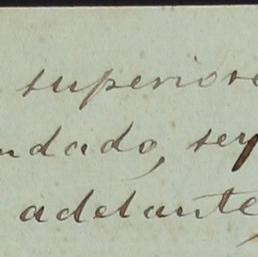 superiores
ndado, sey
adelante,